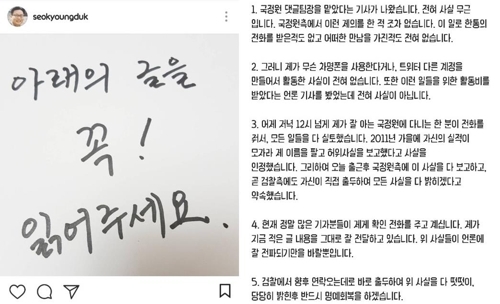 seokyoungduk
아래의 글을
꼭!
읽어주세요.
1. 국정원 댓글팀장을 맡았다는 기사가 나왔습니다. 전혀 사실 무근
입니다. 국정원측에서 이런 제의를 한 적 조차 없습니다. 이 일로 한통의
전화를 받은적도 없고 어떠한 만남을 가진적도 전혀 없습니다.
2. 그러니 제가 무슨 차명폰을 사용한다거나, 트위터 다른 계정을
만들어서 활동한 사실이 전혀 없습니다. 또한 이런 일들을 위한 활동비를
받았다는 언론 기사를 봤었는데 전혀 사실이 아닙니다.
3. 어제 저녁 12시 넘게 제가 잘 아는 국정원에 다니는 한 분이 전화를
걸어, 모든 일들을 다 실토했습니다. 2011년 가을에 자신의 실적이
모자라 제 이름을 팔고 허위사실을 보고했다고 사실을
인정했습니다. 그리하여 오늘 출근후 국정원측에 이 사실을 다 보고하고,
곧 검찰측에도 자신이 직접 출두하여 모든 사실을 다 밝히겠다고
약속했습니다.
4. 현재 정말 많은 기자분들이 제게 확인 전화를 주고 계십니다. 제가
지금 적은 글 내용을 그대로 잘 전달하고 있습니다. 위 사실들이 언론에
잘 전파되기만을 바랄뿐입니다.
5. 검찰에서 향후 연락오는데로 바로 출두하여 위 사실을 다 떳떳이,
당당히 밝힌후 반드시 명예회복을 하겠습니다.